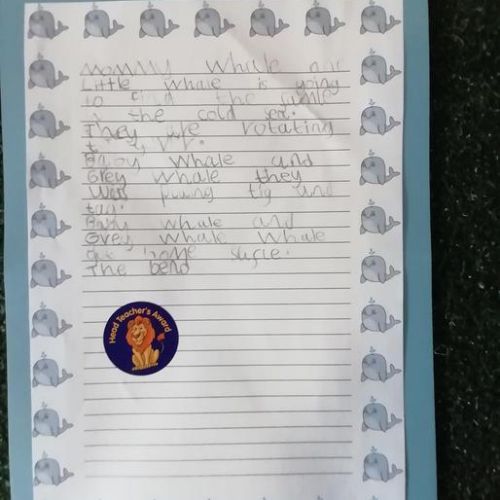 Mommy Whale and
Little Whale is going
to find the
in the cold sea.
They are rotating
Baby Whale and
Grey Whale they
Was tig and
tag.
Baby whale and
Grey Whale Whale
home
The bend
Head Teacher's Award